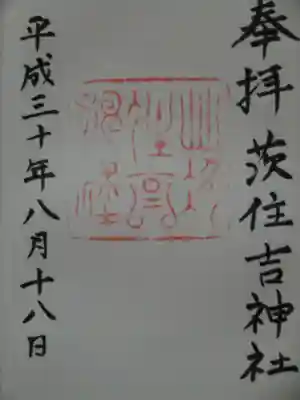 奉拝茨住吉神社
平成三十年八月十八日